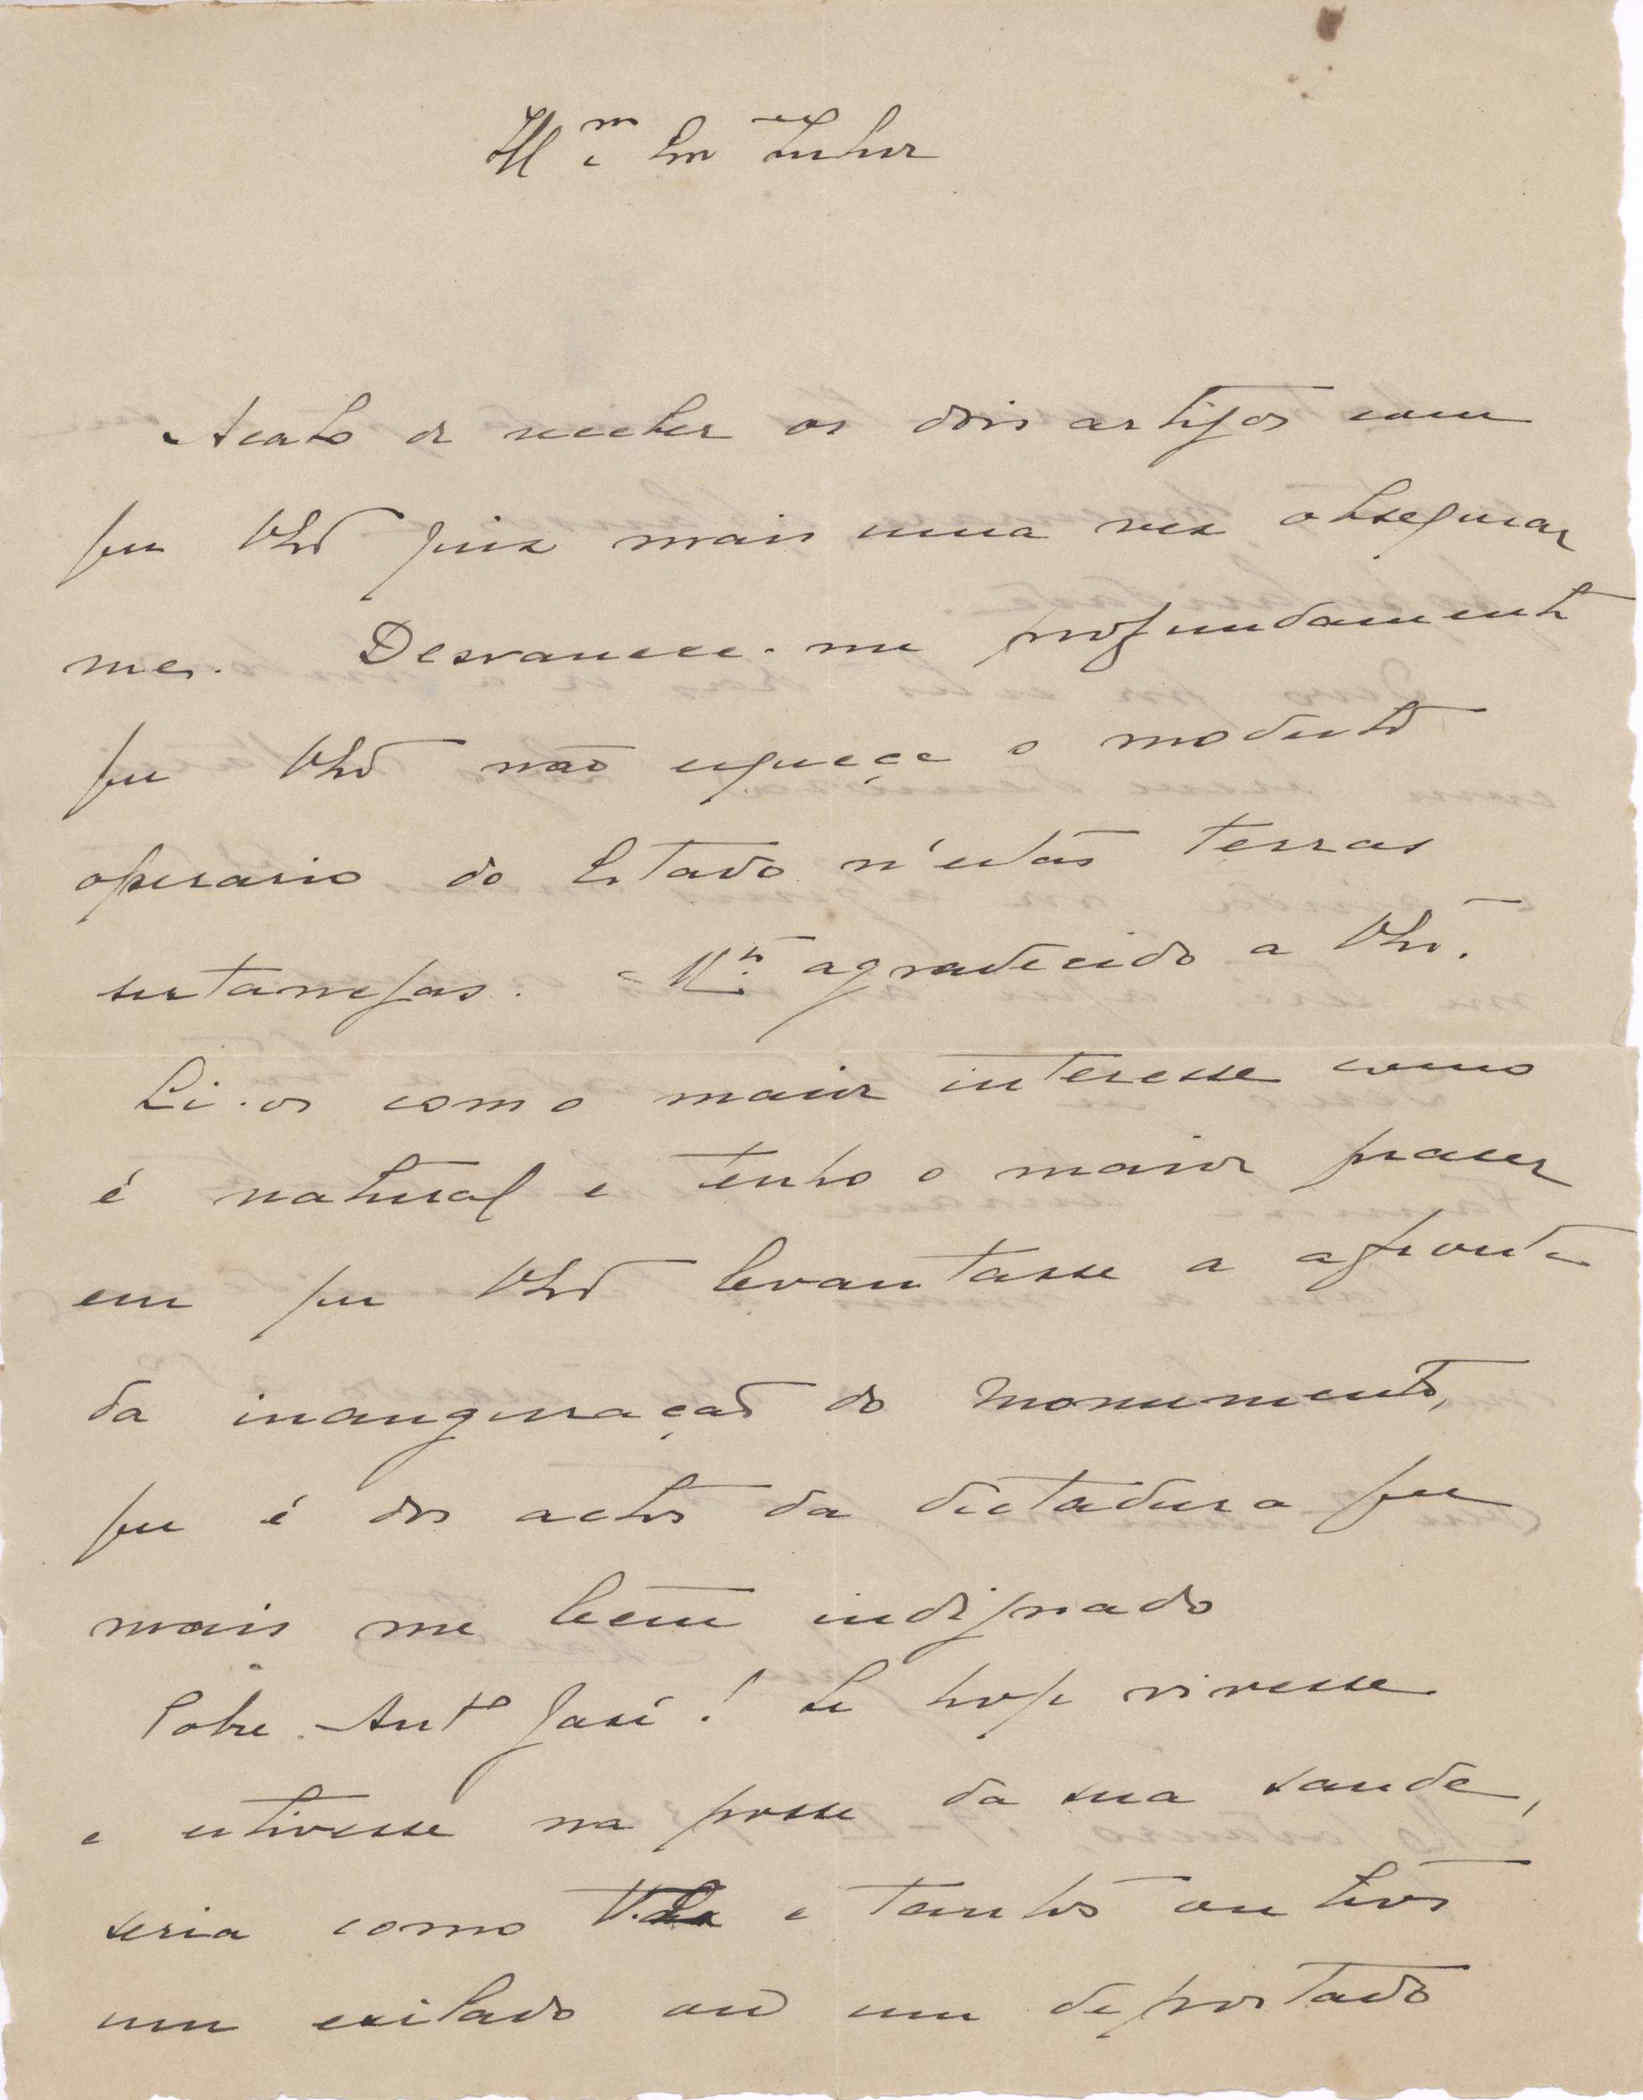 Ill.mo e Exmo Senhor
Acabo de receber os dois artigos com
que V.Exª quiz mais uma vez obsequiar
me. Desvanece-me profundamente
que V.Exª não esqueça o modesto
operario do Estado n'estas terras
sertanejas. = M.to agradecido a V.Exª.
Li-os com o maior interesse como
é natural e tenho o maior prazer
em que V.Exª levantasse a afronta
da inauguração do Monumento,
que é dos actos da dictadura que
mais me teem indignado
Pobre Antº José! Se hoje vivesse
e estivesse na posse da sua saude,
seria como e tantos outros
um exilado ou um deportado